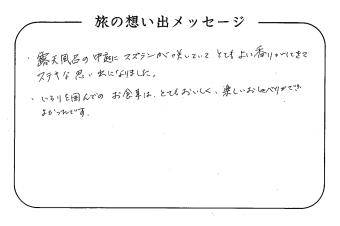 旅の想い出メッセージ
・露天風呂の中庭にスズランが咲いていてとてもよい香りがしてきて
ステキな思い出になりました。
・いろりを囲んでのお食事は、とてもおいしく、楽しいおしゃべりができ
よかったです。